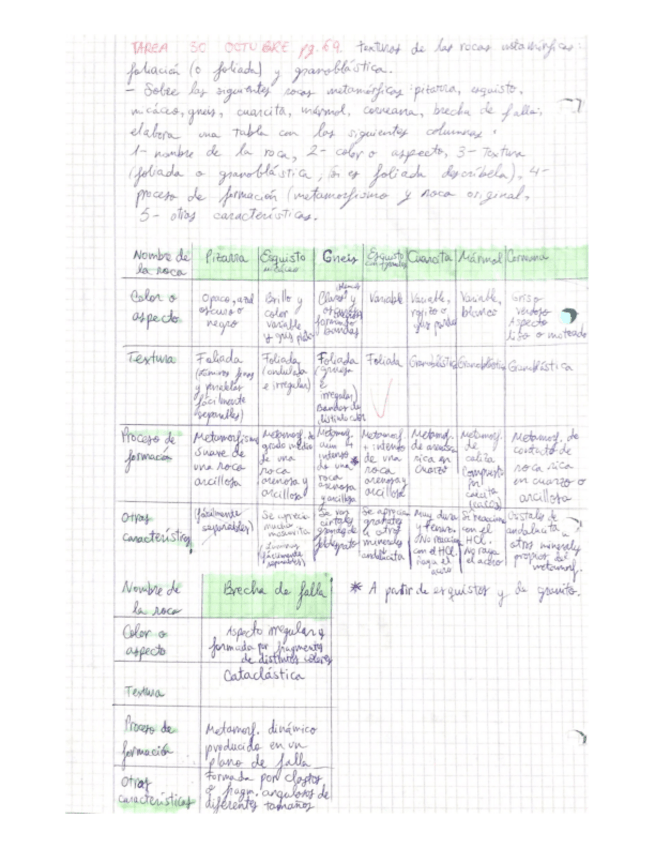 TAREA 30 OCTUBRE pg. 69. Texturas de las rocas metamórficas:
foliación (o foliada) y granoblástica.
- Sobre las siguientes rocas metamórficas: pizarra, esquisto,
micáceo, gneis, cuarcita, mármol, corneana, brecha de falla,
elabora una tabla con las siguientes columnas:
1- nombre de la roca, 2- color o aspecto, 3- Textura
(foliada o granoblástica, si es foliada descríbela), 4-
proceso de formación (metamorfismo y roca original,
5- otras características.
Nombre de la roca
Pizarra
Esquisto micáceo
Gneis
Esquisto
Cuarcita
Mármol
Corneana
Color o aspecto
Opaco, azul oscuro o negro
Brillo y color variable,
Variable
Variable, rojizo o gris
Variable, blanco
Gris o verdoso Aspecto liso o moteado
Textura
Foliada
fácilmente separables)
Foliada (ondulada e irregular)
Foliada
irregular)
Bandas de distinto color
Foliada
Granoblástica
Granoblástica
Granoblástica
Proceso de formación
Metamorfismo suave de una roca arcillosa
Metamorf. de grado medio de una roca arenosa y arcillosa
Metamorf. intenso * de una roca arenosa y arcillosa
Metamorf. intenso de una roca arenosa y arcillosa
Metamorf. de arenisca rica en cuarzo
Metamorf. de caliza Compuesto por calcita
Metamorf. de contacto de roca rica en cuarzo o arcillosa
Otras características
(fácilmente separables)
Se aprecia mucha moscovita
(láminas fácilmente separables)
Se aprecian granates u otros minerales andalucita
Muy dura
No reacciona con el HCl. Raya el acero
Sí reacciona con el HCl. No raya el acero
Cristales de andalucita u otros minerales propios del metamorf.
Nombre de la roca
Brecha de falla
* A partir de esquistos y de granito.
Color o aspecto
Aspecto irregular y formada por fragmentos de distintos colores
Textura
Cataclástica
Proceso de formación
Metamorf. dinámico producido en un plano de falla
Otras características
Formada por clastos o fragm. angulosos de diferentes tamaños